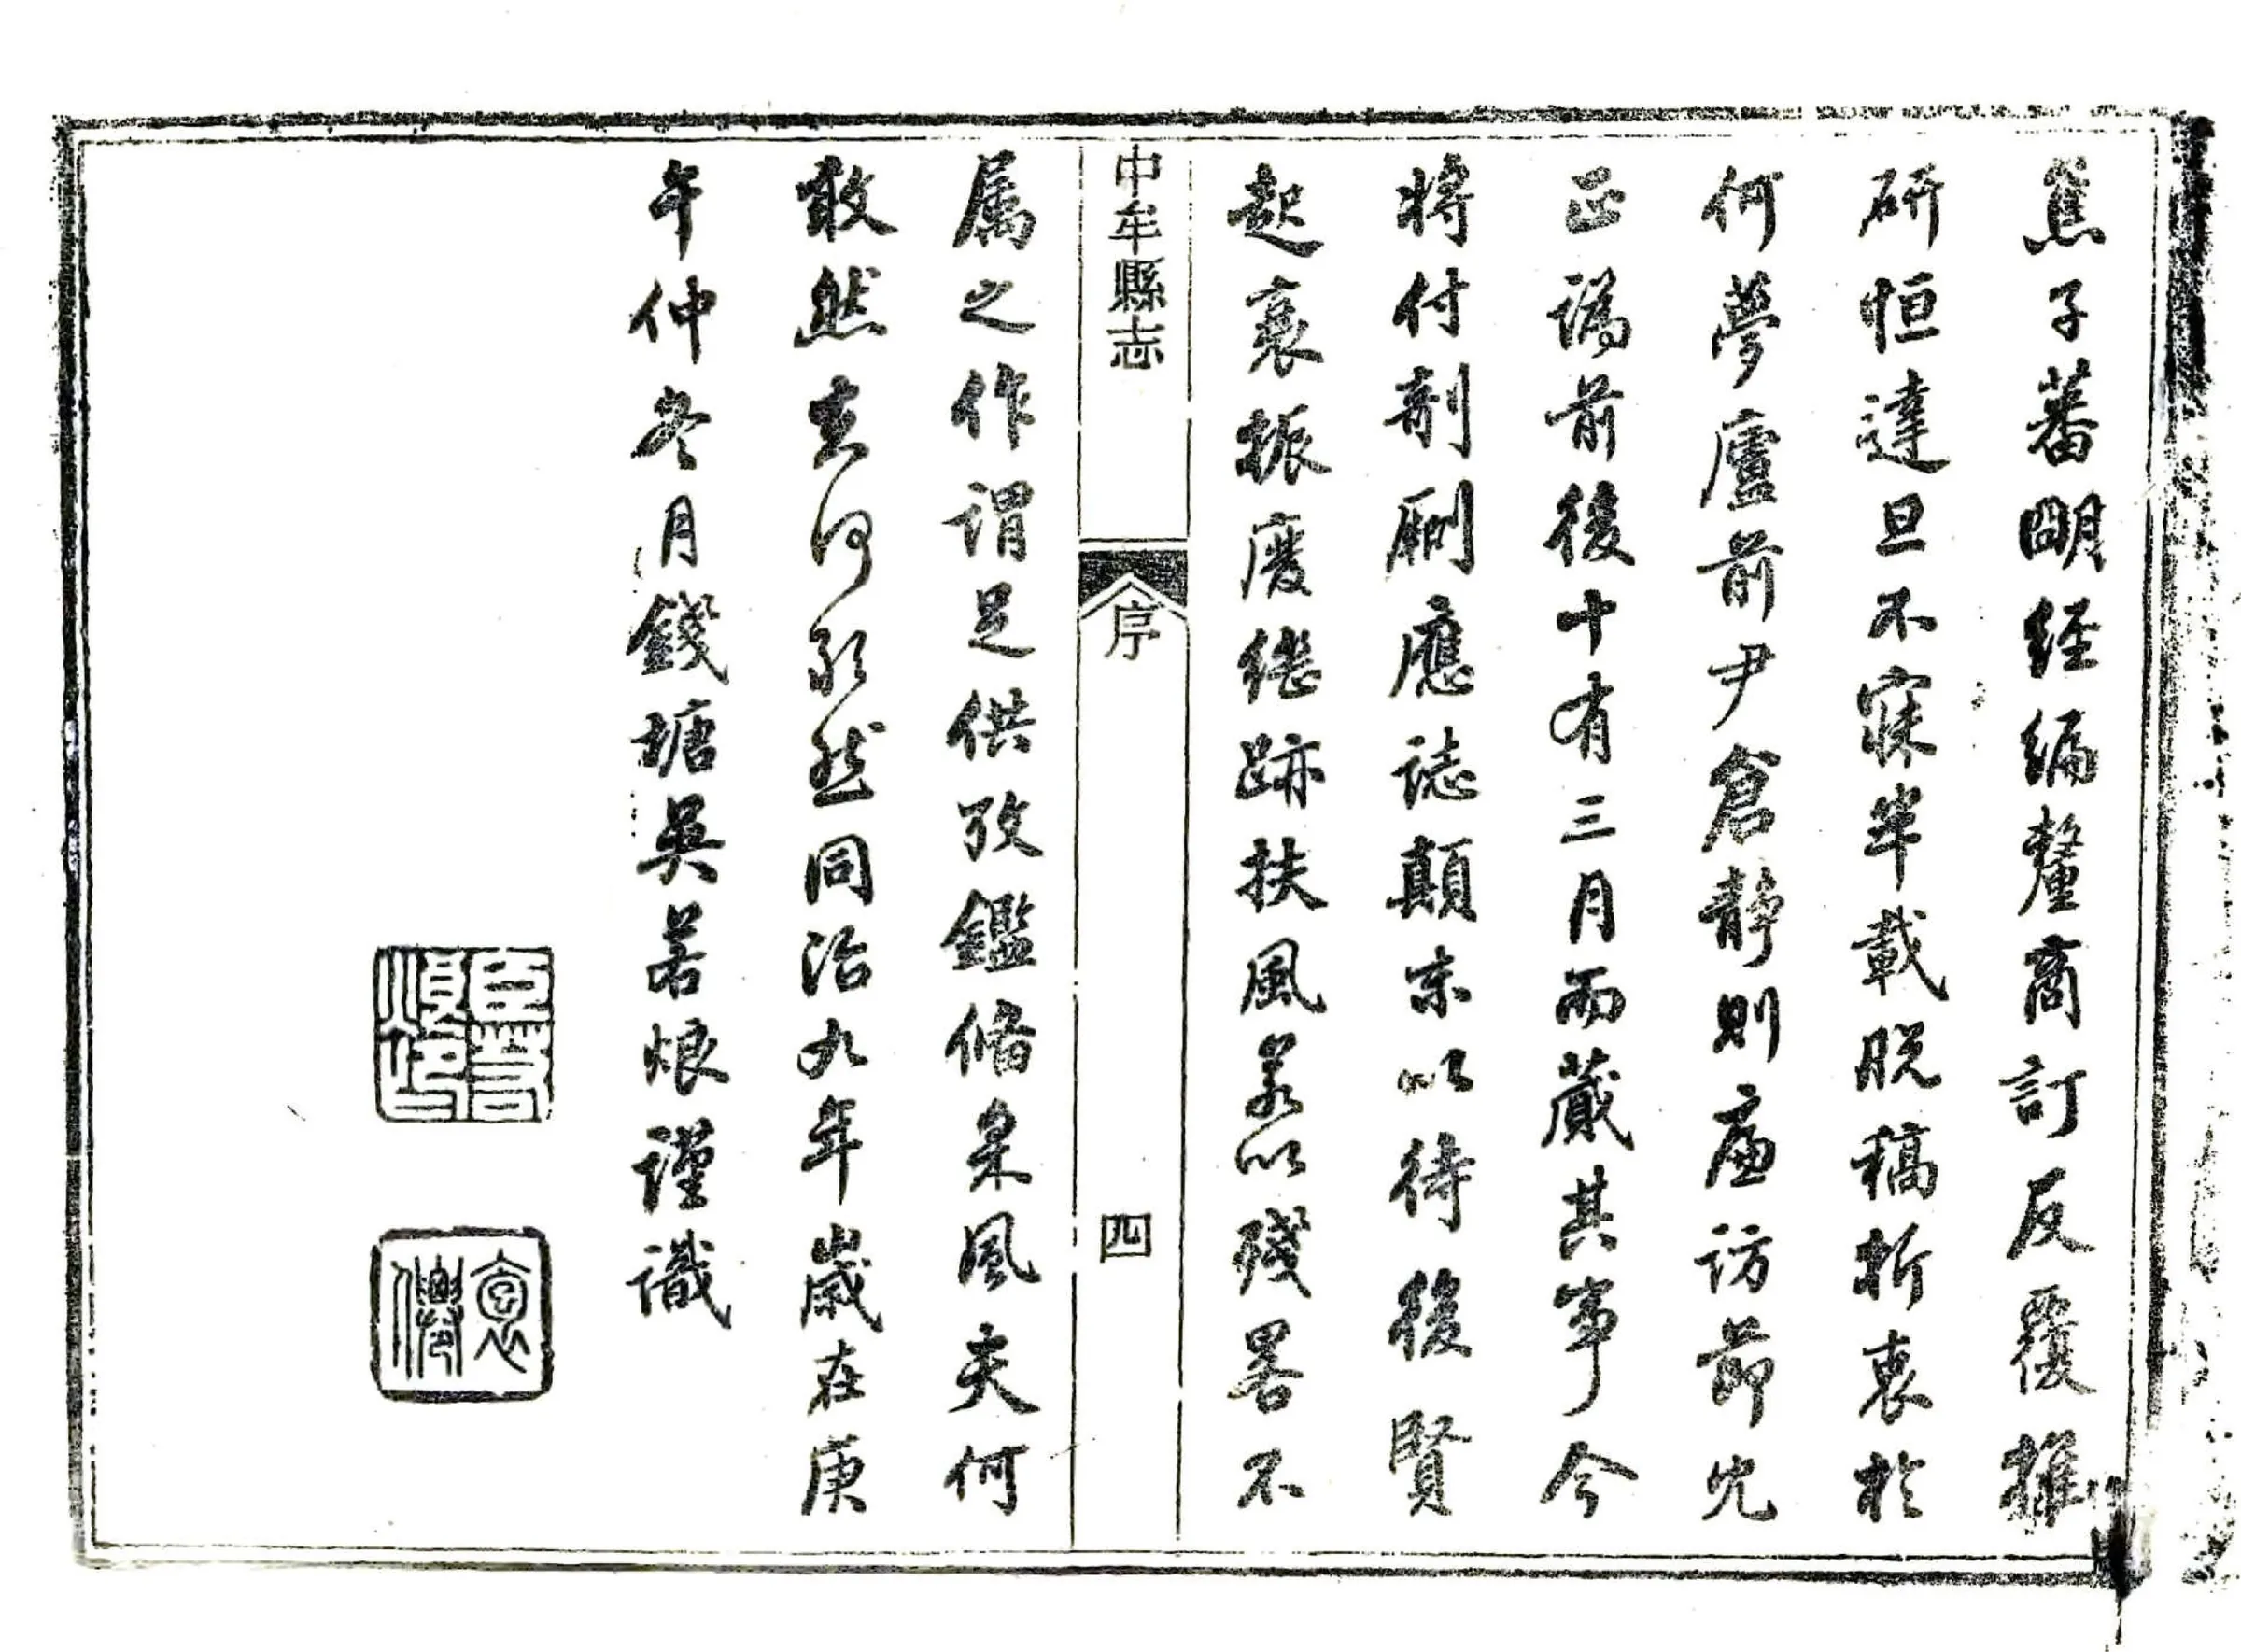 焦子蕃朙経編釐商訂反覆推
研恒達旦不寐半載脱稿折衷於
何夢廬前尹倉靜則廉訪節
正譌前後十有三月而蕆其事今
將付剞劂應誌顛末以待後賢
起衰振廢継跡扶風若以殘畧不
中牟縣志
序
四
属之作謂足供攷鑑俻采風夫何
敢然夫何敢然同治九年歲在庚
午仲冬月錢塘吳若烺謹識
臣若烺印